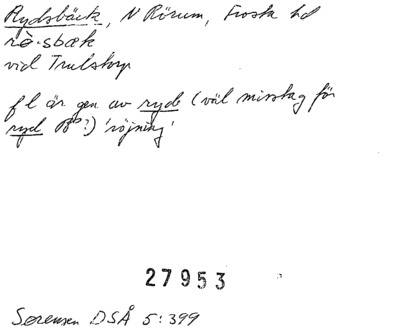 Rydsbäck, N Rörum, Frosta hd
rè·sbæk
vid Trulstorp
f l är gen av ryde (väl misstag för
ryd ?) 'röjning'
27953
Sørensen DSÅ 5:399